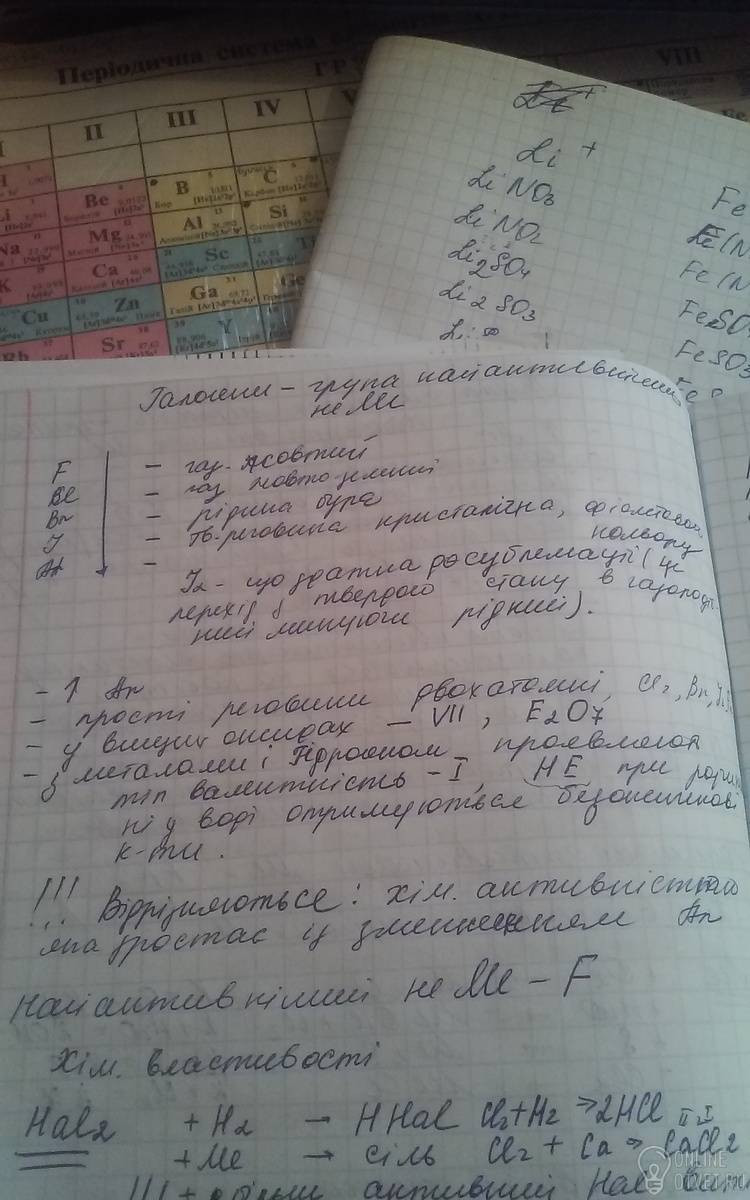 Періодична система
ГР
II
III
IV
V
VIII
Be
B
C
Li
Mg
Al
Si
Na
Ca
Sc
K
Cu
Zn
Ga
Ge
Rb
Sr
Y
Li +
LiNO3
LiNO2
Li2SO4
Li2SO3
Li
Fe
Fe(N
Fe(N
FeSO4
FeSO3
Галогени – група найактивніших
неМе
F – газ жовтий
Cl – газ жовто-зелений
Br – рідина бура
J – тв. речовина кристалічна, фіолетового
кольору
At –
J2 – що здатна до сублемації (це
перехід з твердого стану в газоподіб
ний минуючи рідкий).
- ↑ Ar
- прості речовини двохатомні, Cl2, Br2, J2
- у вищих оксидах – VII, E2O7
- з металами і Гідрогеном проявляють
тіп валентність – I, HE при розчин
ні у воді отримуються безоксигенові
к-ти.
!!! Відрізняються: хім. активністю
яка зростає із зменшенням Ar
Найактивніший неМе – F
Хім. властивості
Hal2 + H2 → HHal Cl2+H2 → 2HCl
+ Me → сіль Cl2 + Ca → CaCl2
II I
!!! + більш активний Hal
ONLINE